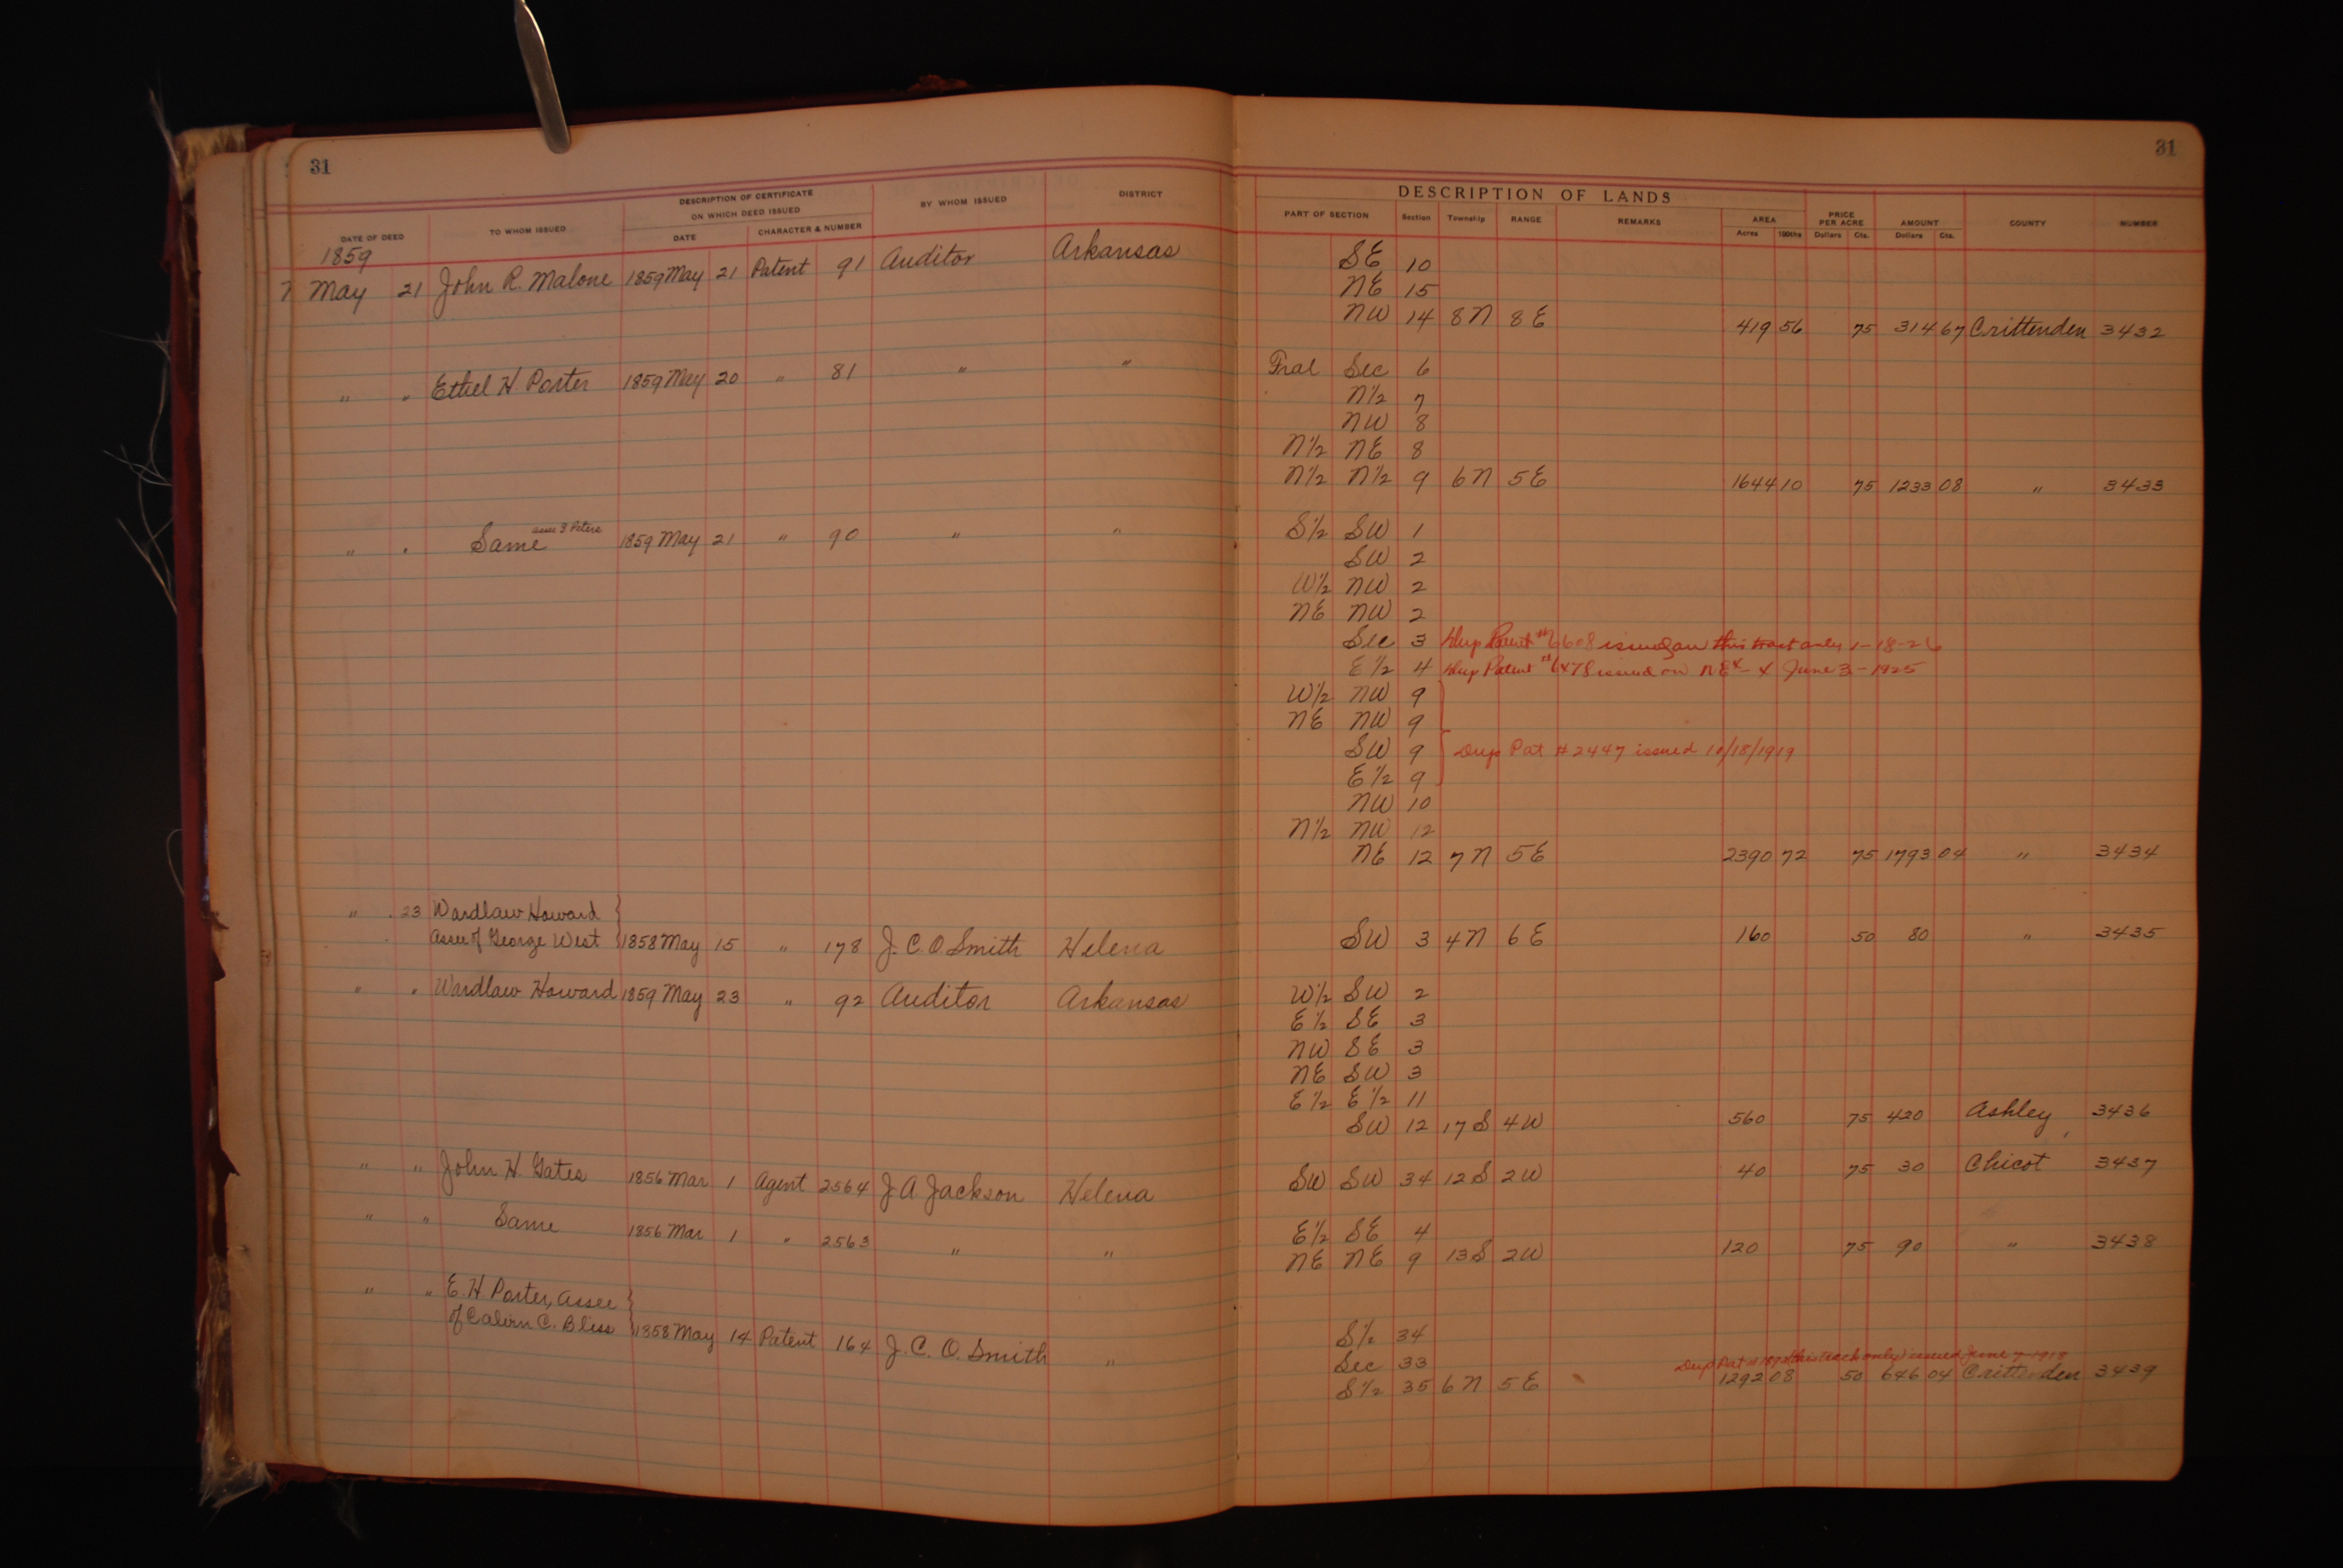 31
DESCRIPTION OF CERTIFICATE
ON WHICH DEED ISSUED
DATE OF DEED TO WHOM ISSUED DATE CHARACTER & NUMBER BY WHOM ISSUED DISTRICT
1859
May 21 John R. Malone 1859 May 21 Patent 91 Auditor Arkansas
" " Ethel H. Porter 1859 May 20 " 81 " "
" " Same assee J. Peters 1859 May 21 " 90 " "
" " 23 Wardlaw Howard }
assee of George West } 1858 May 15 " 178 J. C. O. Smith Helena
" " Wardlaw Howard 1859 May 23 " 92 Auditor Arkansas
" " John H. Gates 1856 Mar 1 Agent 2564 J A Jackson Helena
" " Same 1856 Mar 1 " 2563 " "
" " E. H. Porter, assee }
of Calvin C. Bliss } 1858 May 14 Patent 164 J. C. O. Smith "
31
DESCRIPTION OF LANDS
PART OF SECTION Section Township RANGE REMARKS AREA PRICE PER ACRE AMOUNT COUNTY NUMBER
Acres 100ths Dollars Cts. Dollars Cts.
SE 10
NE 15
NW 14 8N 8E 419 56 75 314 67 Crittenden 3432
Fral Sec 6
N½ 7
NW 8
N½ NE 8
N½ N½ 9 6N 5E 1644 10 75 1233 08 " 3433
S½ SW 1
SW 2
W½ NW 2
NE NW 2
Sec 3 Dup Patent #6608 issued on this tract only 1-18-26
E½ 4 Dup Patent # issued on NE¼ June 3-1925
W½ NW 9
NE NW 9
SW 9 Dup Pat #2447 issued 10/18/1919
E½ 9
NW 10
N½ NW 12
NE 12 7N 5E 2390 72 75 1793 04 " 3434
SW 3 4N 6E 160 50 80 " 3435
W½ SW 2
E½ SE 3
NW SE 3
NE SW 3
E½ E½ 11
SW 12 17S 4W 560 75 420 Ashley 3436
SW SW 34 12S 2W 40 75 30 Chicot 3437
E½ SE 4
NE NE 9 13S 2W 120 75 90 " 3438
S½ 34
Sec 33 Dup Pat # (this tract only) issued June 7-1918
S½ 35 6N 5E 1292 08 50 646 04 Crittenden 3439